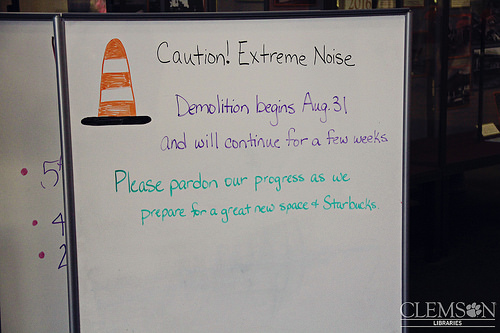 Caution! Extreme Noise
Demolition begins Aug. 31
and will continue for a few weeks
Please pardon our progress as we
prepare for a great new space + Starbucks.
5th
4
2
CLEMSON
LIBRARIES